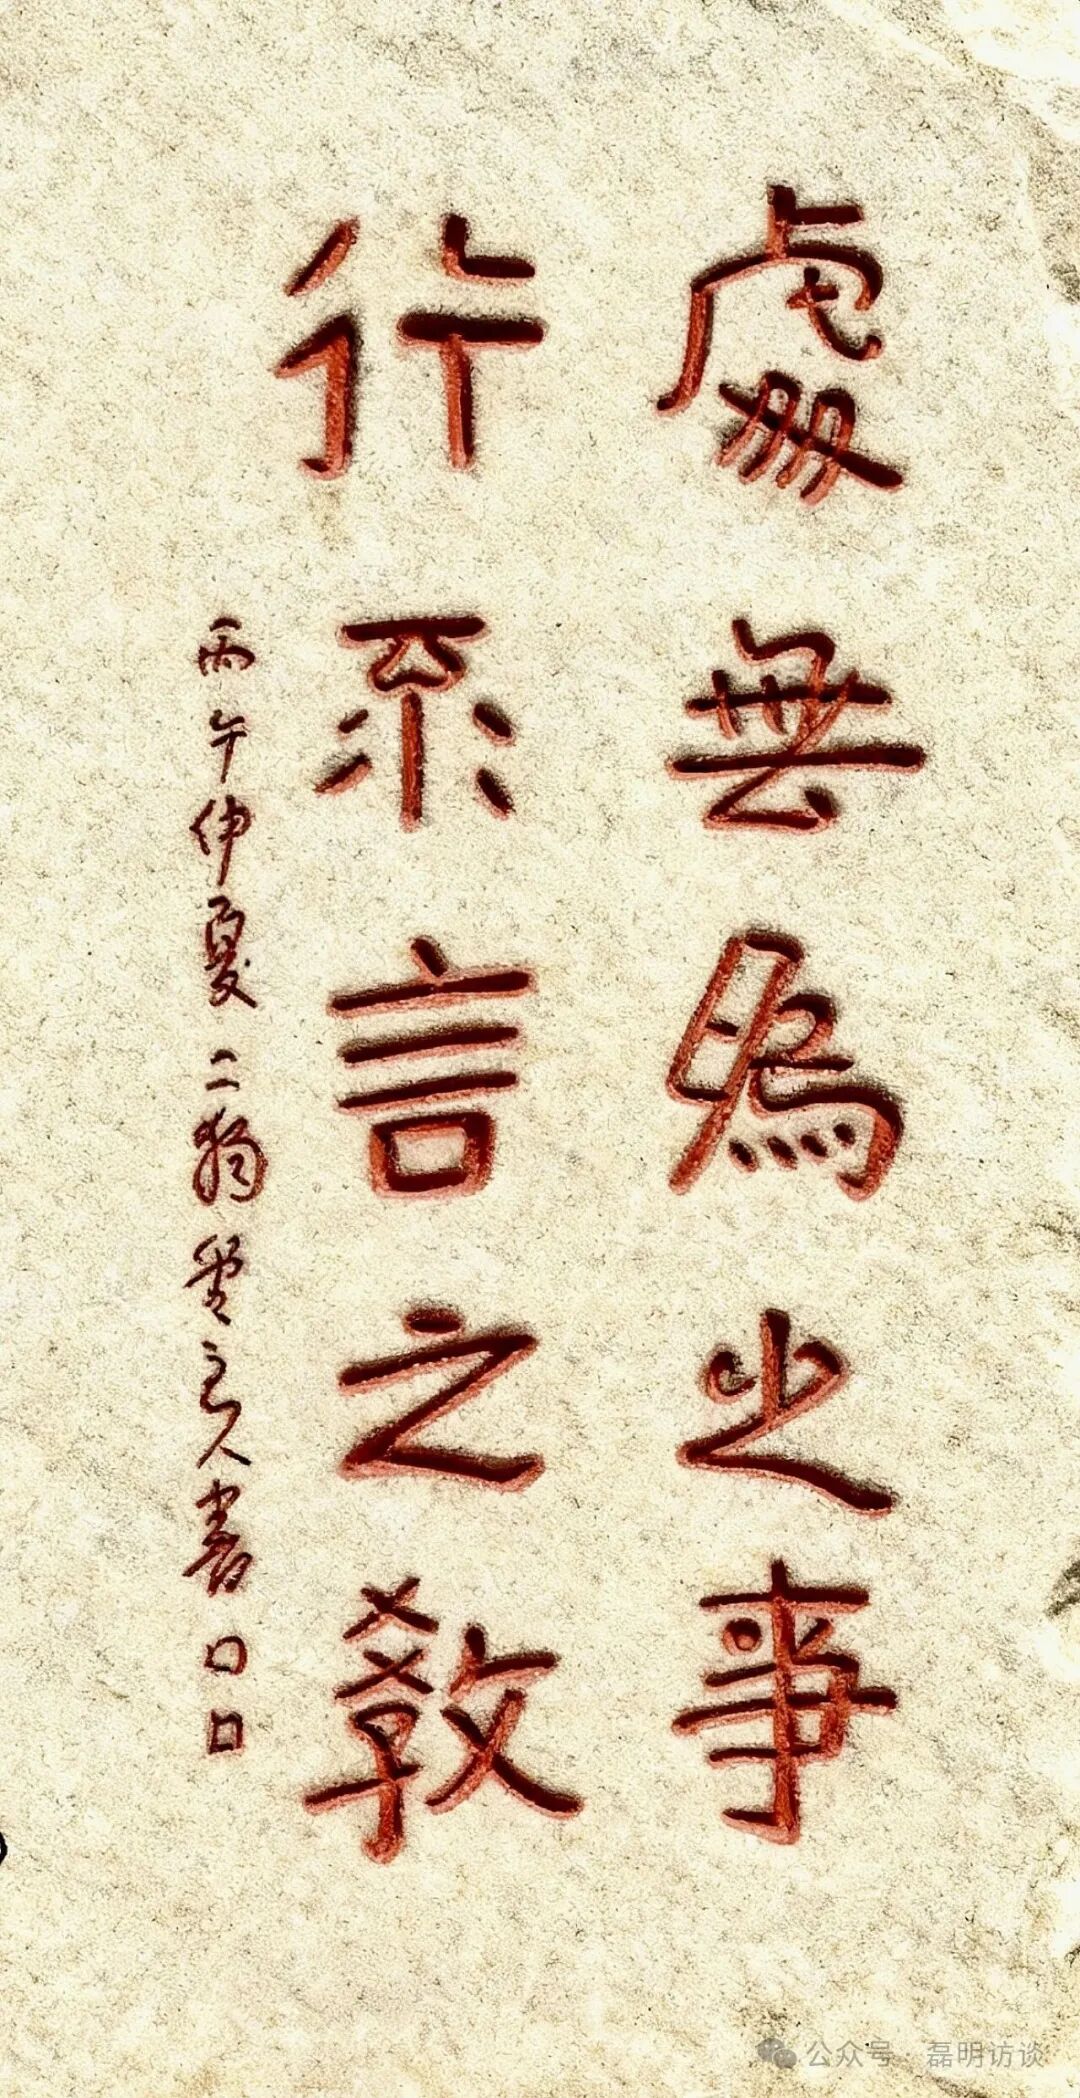 處無為之事
行不言之教
丙午仲夏二狗堂主人書口口
公众号·磊明访谈